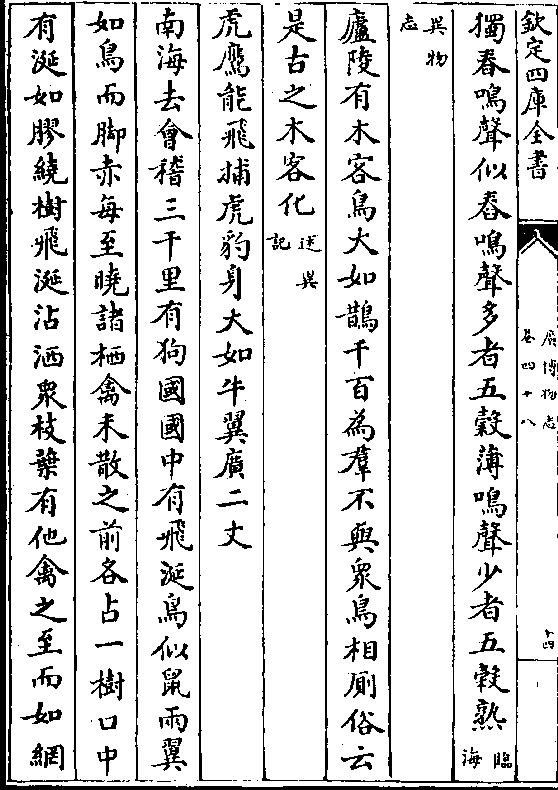 欽定四庫全書
廣博物志
卷四十八
十四
獨舂鳴聲似舂鳴聲多者五穀薄鳴聲少者五穀熟臨海
異物志
廬陵有木客鳥大如鵲千百為羣不與衆鳥相厠俗云
是古之木客化述異記
虎鷹能飛捕虎豹身大如牛翼廣二丈
南海去會稽三千里有狗國國中有飛涎鳥似鼠兩翼
如鳥而脚赤每至曉諸栖禽未散之前各占一樹口中
有涎如膠繞樹飛涎沾洒衆枝葉有他禽之至而如網